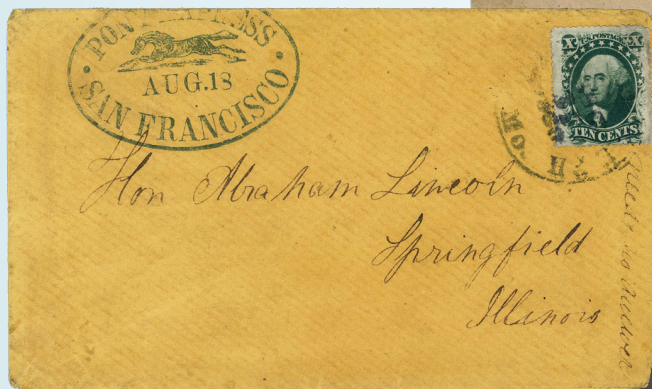 PONY EXPRESS
AUG.18
SAN FRANCISCO
X U.S. POSTAGE X
TEN CENTS
Hon Abraham Lincoln
Springfield
Illinois
no answer